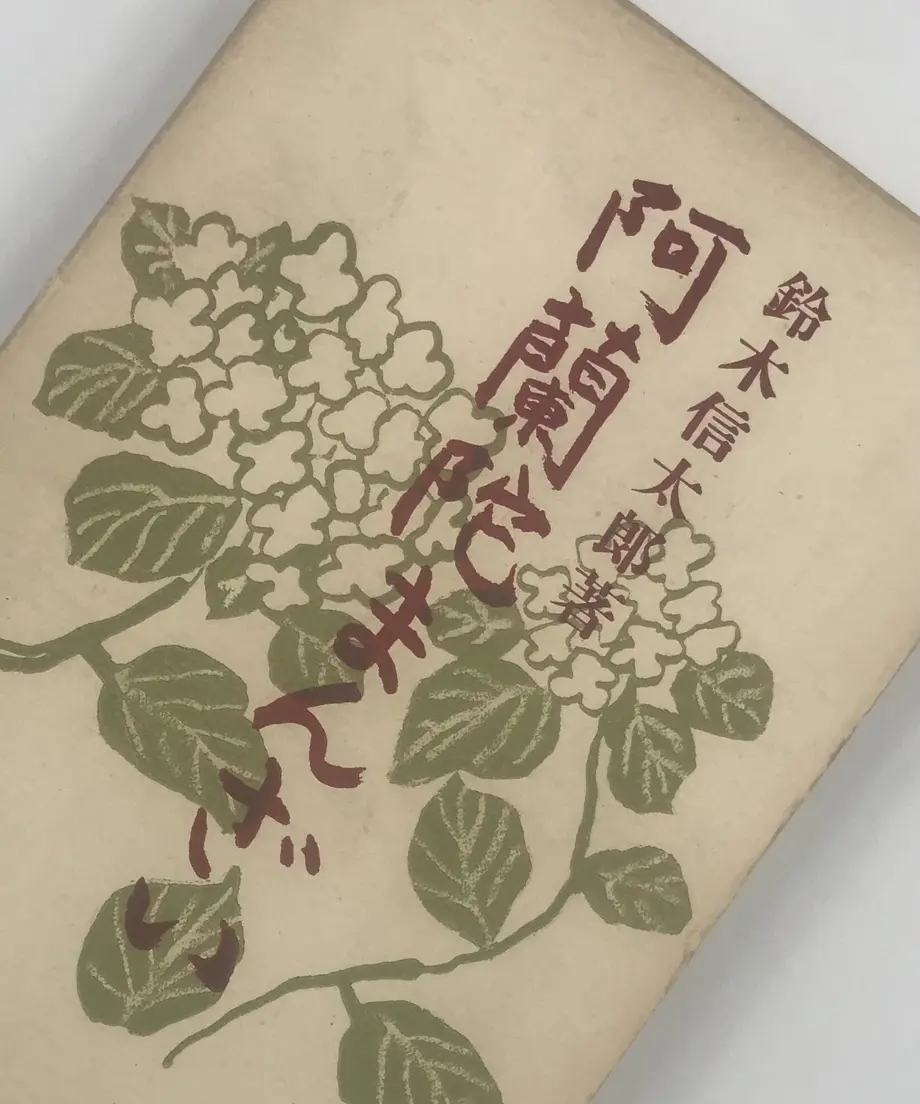 鈴木信太郎著
阿蘭陀まんざい